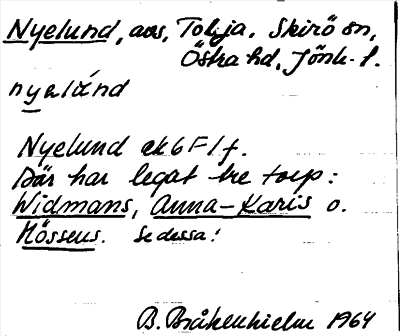 Nyelund, avs, Tolja. Skirö sn,
Östra hd, Jönk. l.
nyelúnd
Nyelund ek 6 F 1 f.
Där har legat tre torp:
Widmans, Anna-Karis o.
Mössens. Se dessa!
B. Bråkenhielm 1964